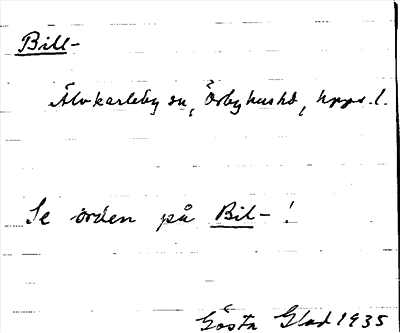 Bill-
Älvkarleby sn, Örbyhushd, Upps. l.
Se orden på Bil- !
Gösta Glad 1935